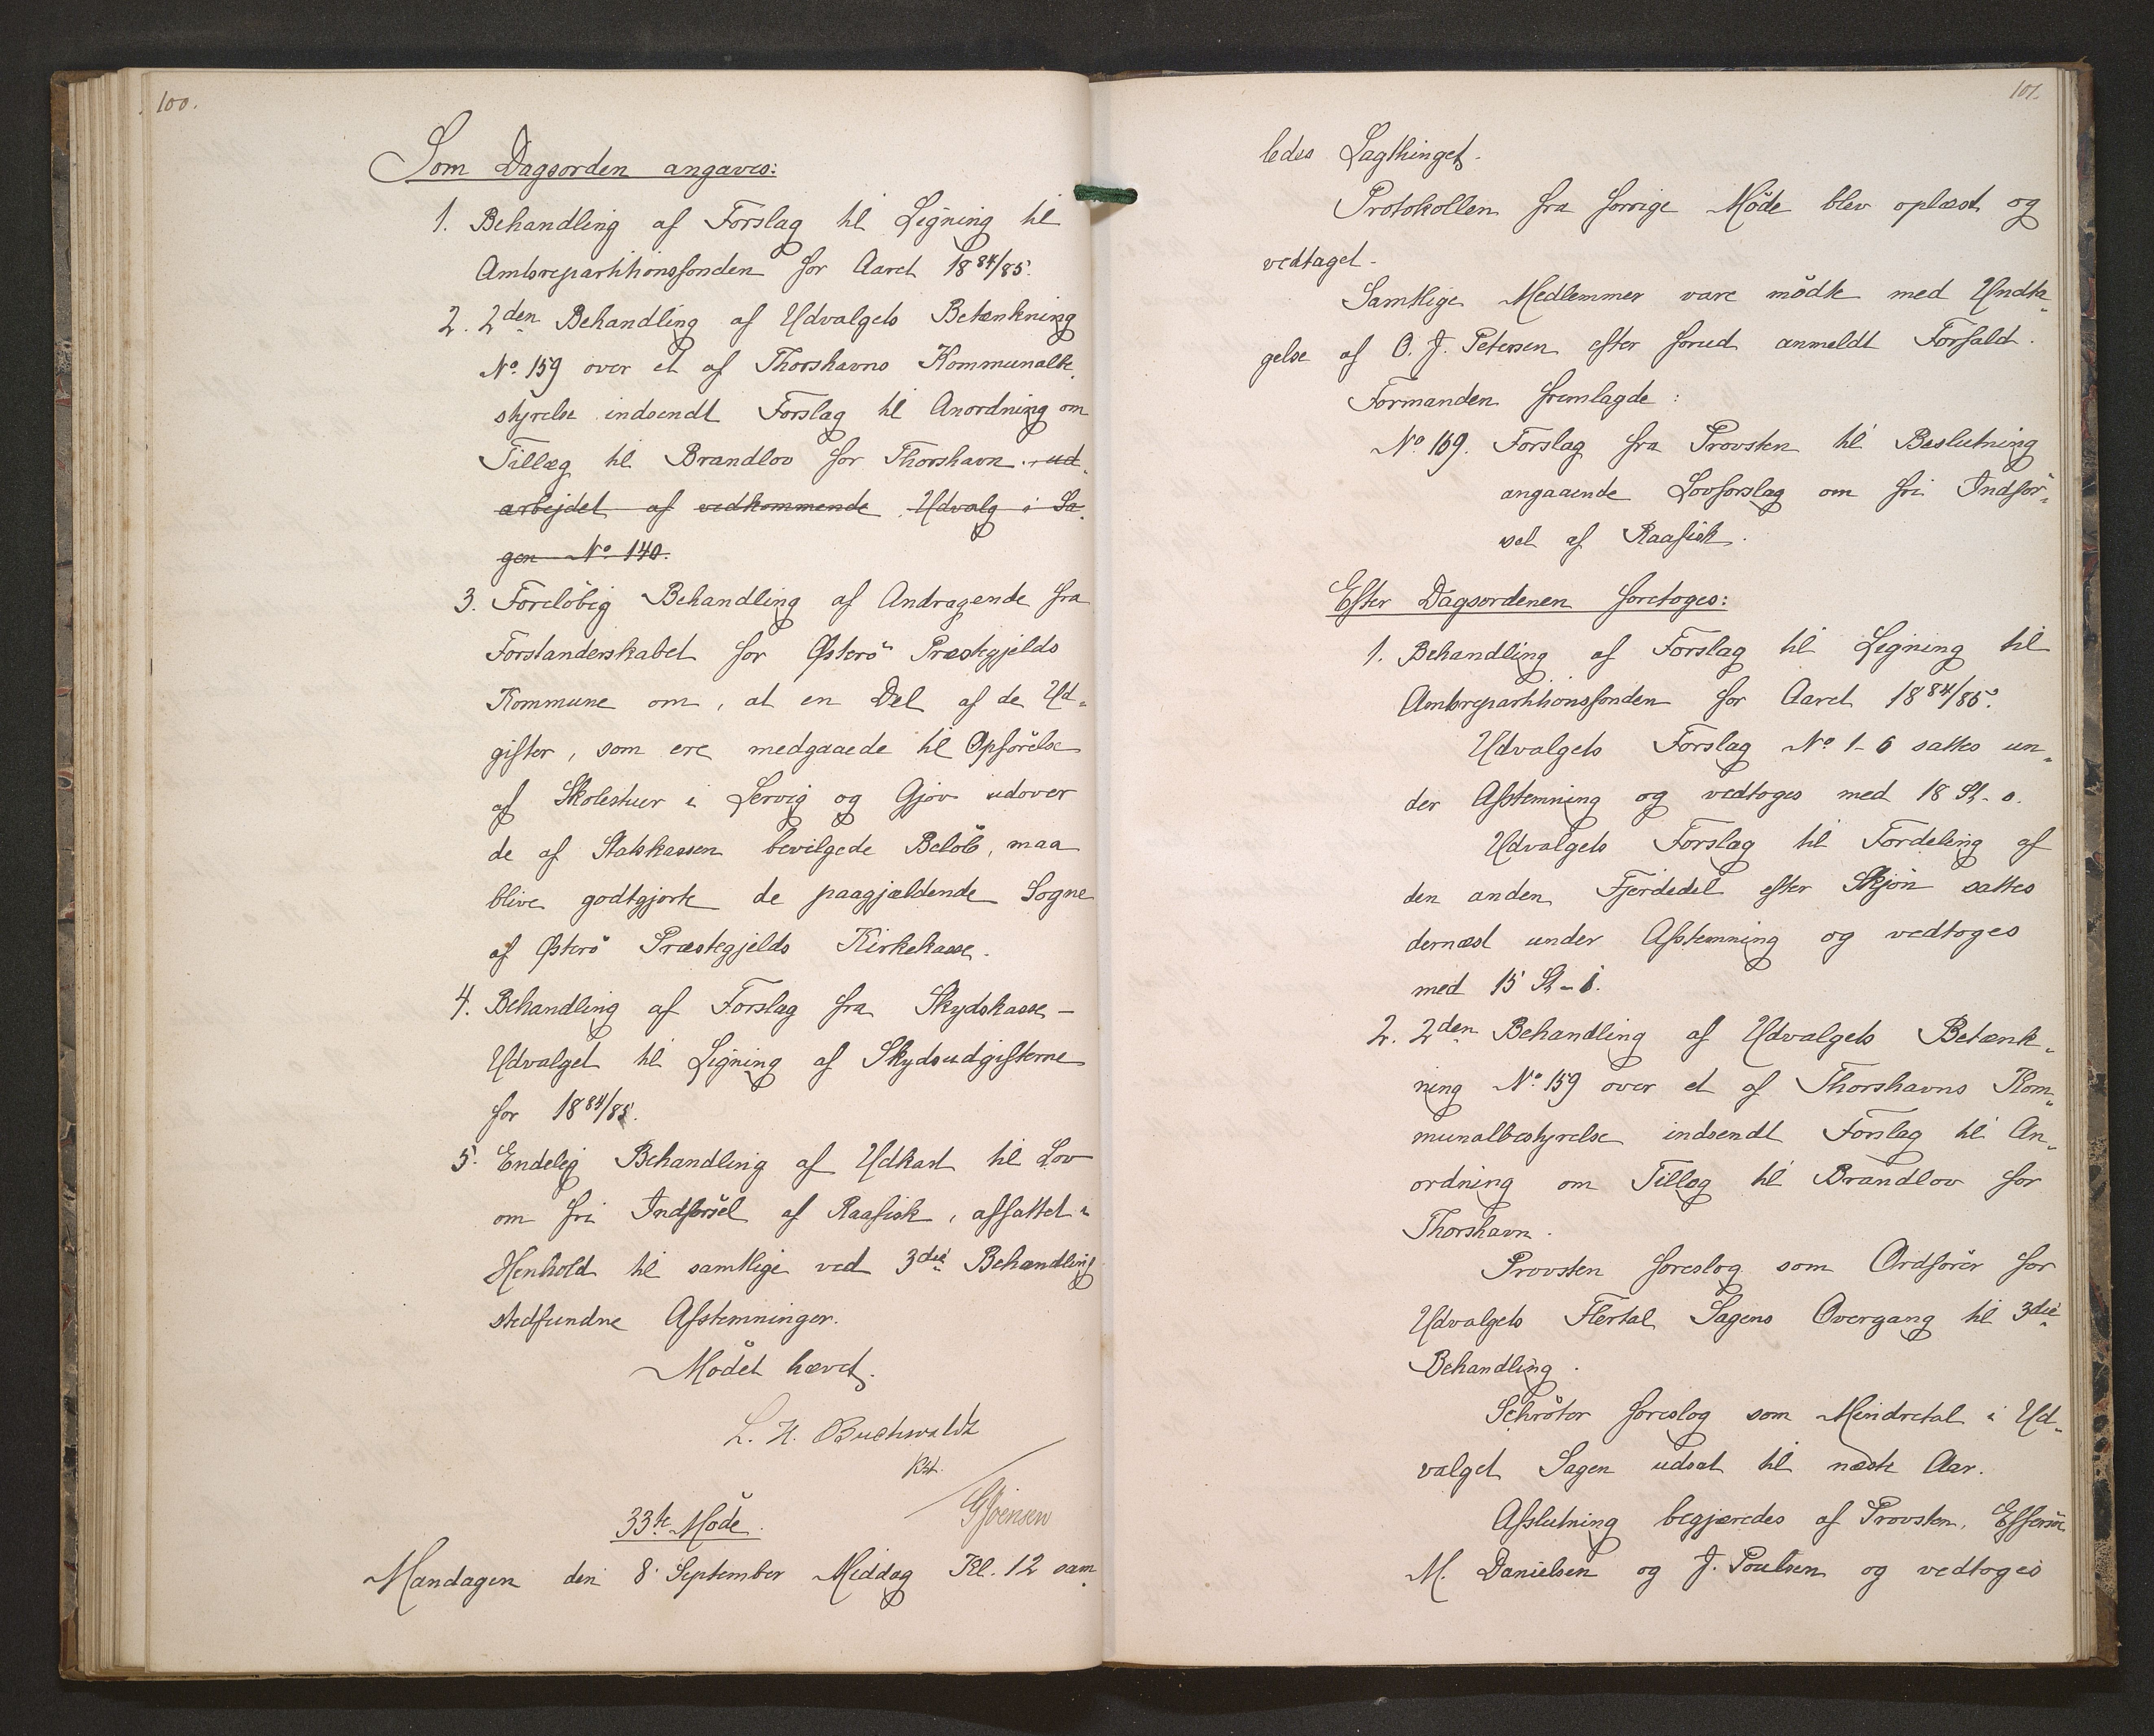 100.
Som Dagsorden angaves:
1. Behandling af Forslag til Ligning til
Amtsrepartitionsfonden for Aaret 1884/85.
2. 2den Behandling af Udvalgets Betænkning
No. 159 over et af Thorshavns Kommunalbe„
styrelse indsendt Forslag til Anordning om
Tillæg til Brandlov for Thorshavn, ud„
arbejdet af vedkommende Udvalg i Sa„
gen No 140.
3. Foreløbig Behandling af Andragende fra
Forstanderskabet for Østerö Præstegjelds
Kommune om, at en Del af de Ud„
gifter, som ere medgaaede til Opförelse
af Skolestuer i Lervig og Gjov udover
de af Statskassen bevilgede Belöb, maa
blive godtgjorte de paagjældende Sogne
af Østerö Præstegjelds Kirkekasse.
4. Behandling af Forslag fra Skydskasse-
Udvalget til Ligning af Skydsudgifterne
for 1884/85.
5. Endelig Behandling af Udkast til Lov
om fri Indförsel af Raafisk, affattet i
Henhold til samtlige ved 3die Behandling
stedfundne Afstemninger.
Mödet hævet.
L. H. Buchwaldt
kst.
GJoensen
33te Möde.
Mandagen den 8. September Middag Kl. 12 sam„
101.
ledes Lagthinget.
Protokollen fra forrige Möde blev oplæst og
vedtaget.
Samtlige Medlemmer vare mödte med Undta„
gelse af O. J. Petersen efter forud anmeldt Forfald.
Formanden fremlagde:
No 169. Forslag fra Provsten til Beslutning
angaaende Lovforslag om fri Indför„
sel af Raafisk.
Efter Dagsordenen foretoges:
1. Behandling af Forslag til Ligning til
Amtsrepartitionsfonden for Aaret 1884/85.
Udvalgets Forslag No 1-6 sattes un„
der Afstemning og vedtoges med 18 St - 0.
Udvalgets Forslag til Fordeling af
den anden Fjerdedel efter Skjön sattes
dernæst under Afstemning og vedtoges
med 15 St - 1.
2. 2den Behandling af Udvalgets Betænk„
ning No. 159 over et af Thorshavns Kom„
munalbestyrelse indsendt Forslag til An„
ordning om Tillæg til Brandlov for
Thorshavn.
Provsten foreslog som Ordförer for
Udvalgets Flertal Sagens Overgang til 3die
Behandling.
Schröter foreslog som Mindretal i Ud„
valget Sagen udsat til næste Aar.
Afslutning begjæredes af Provsten, Effersöe
M. Danielsen og J. Poulsen og vedtoges